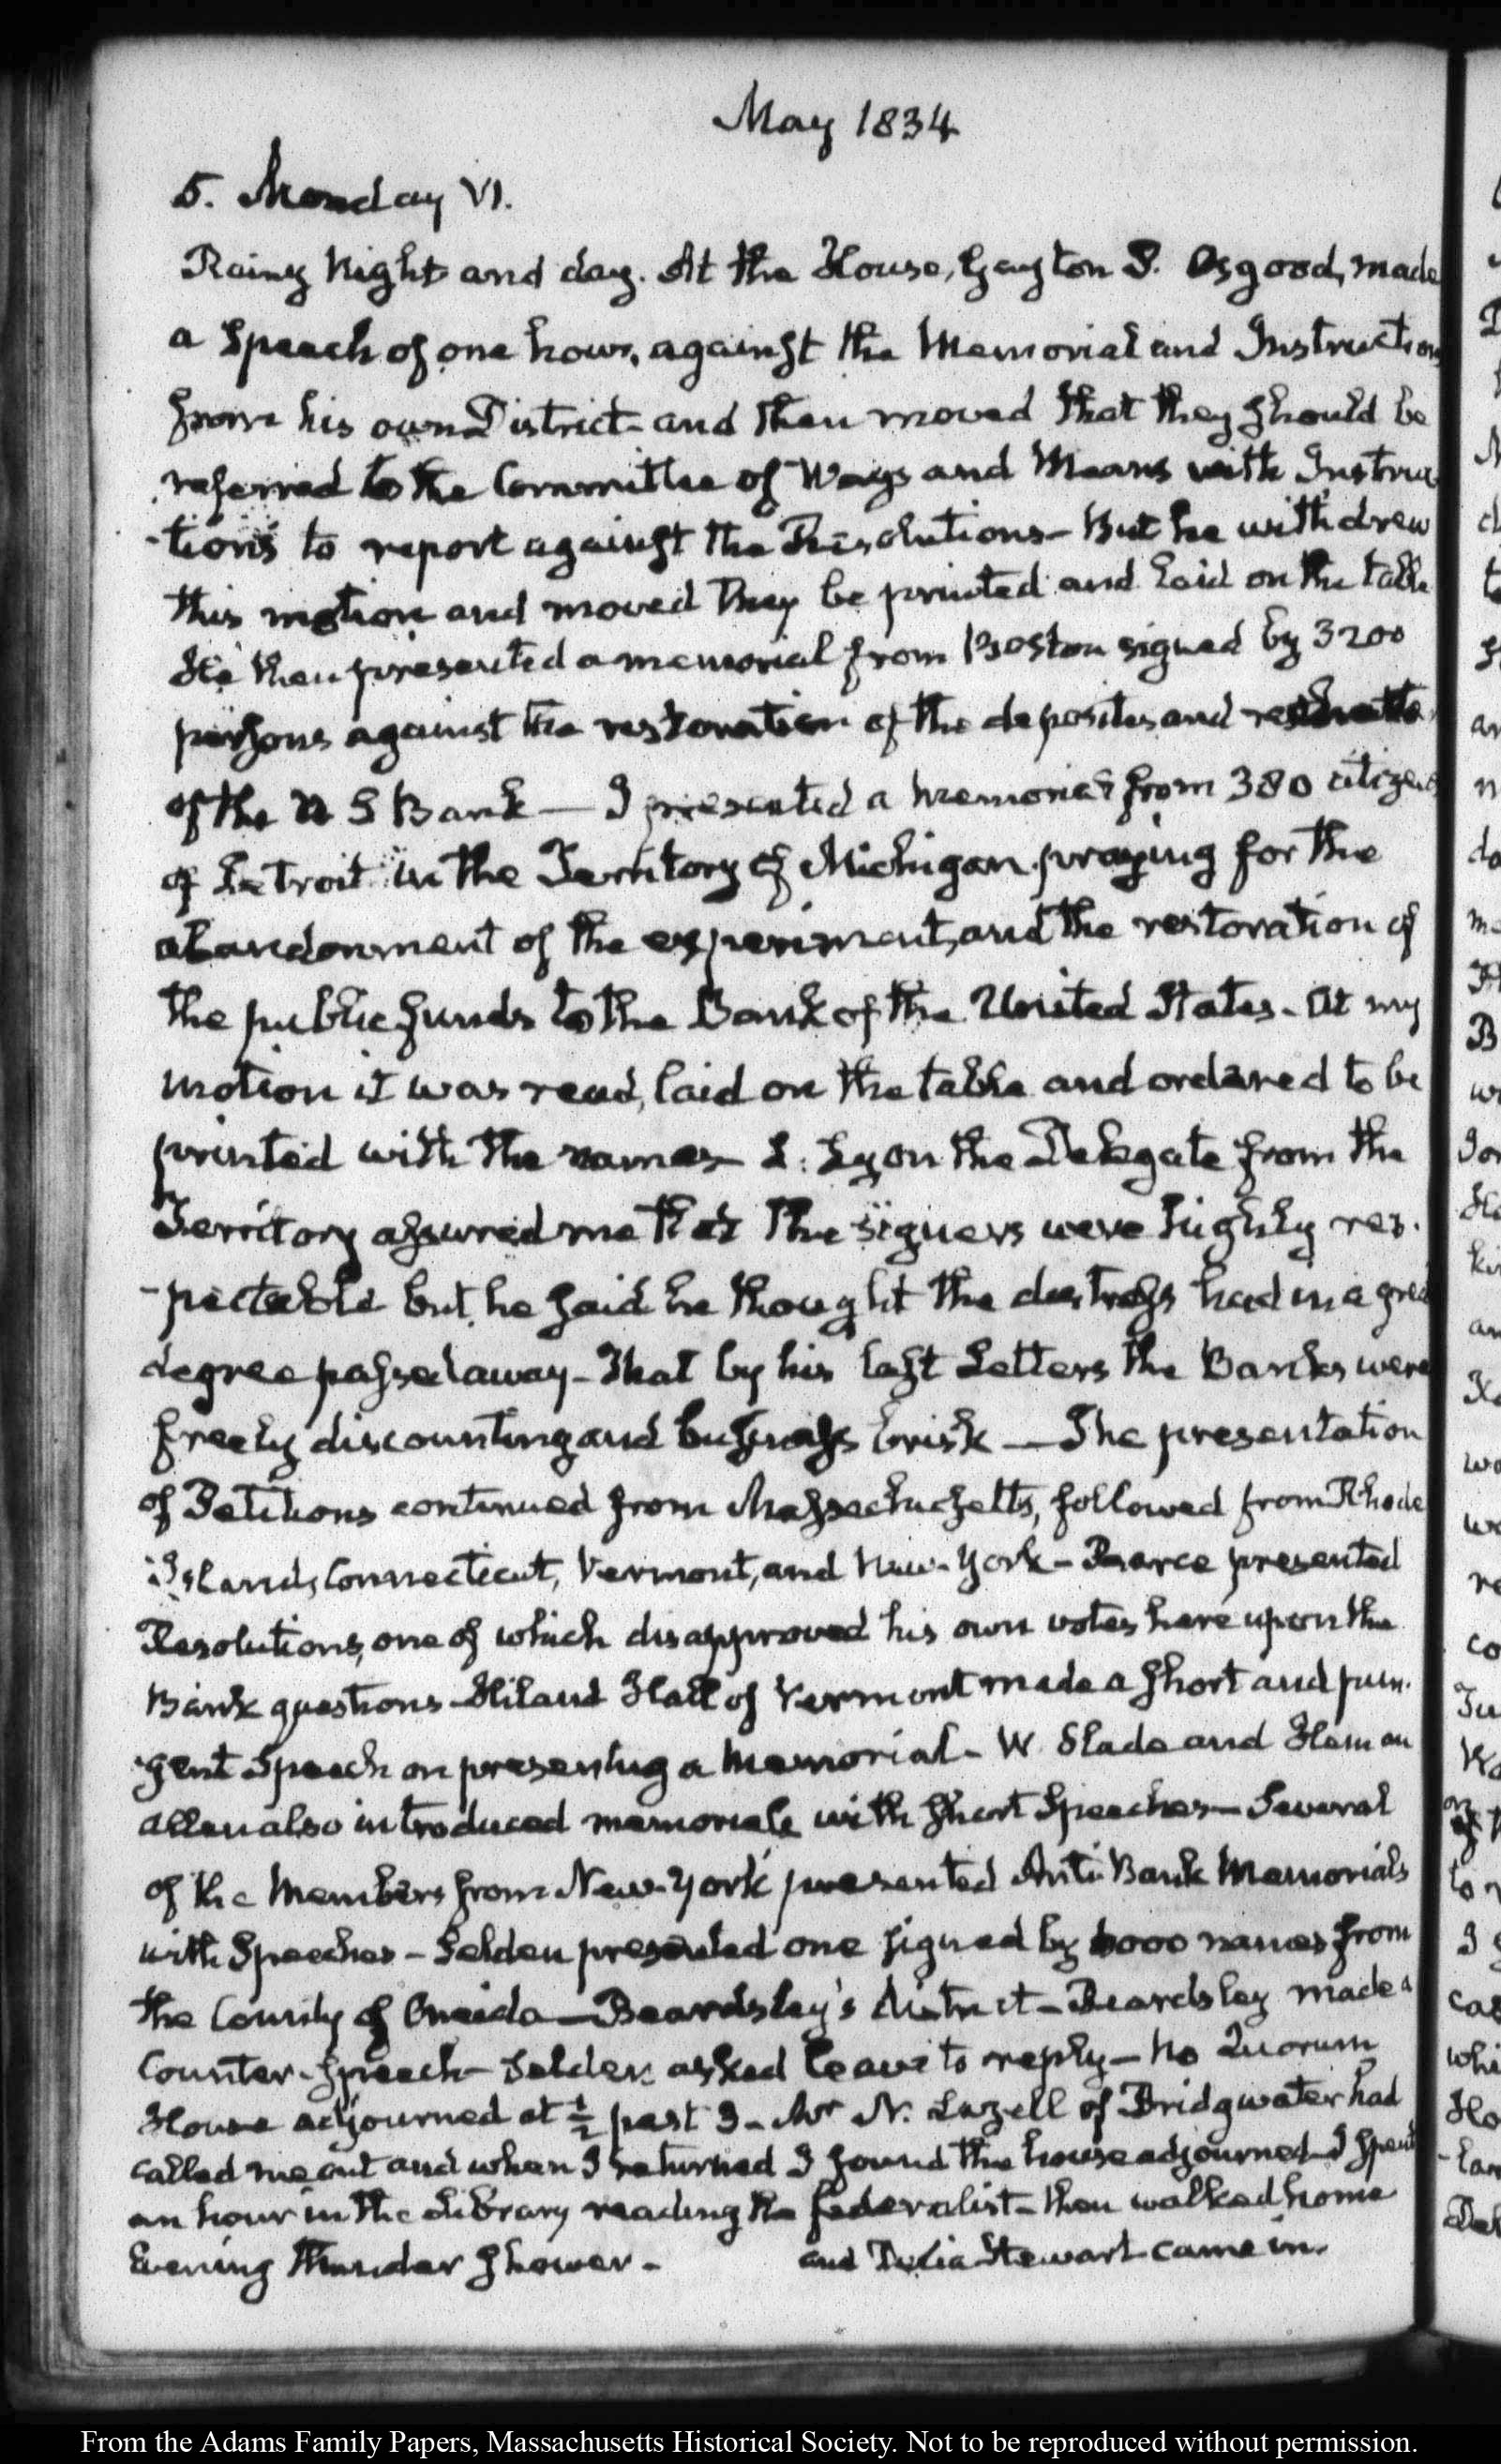 May 1834
5. Monday VI.
Rainy Night and day. At the House, Gayton P. Osgood, made
a Speech of one hour, against the Memorial and Instruction
from his own District and then moved that they should be
referred to the Committee of Ways and Means with Instruc
-tions to report against the Resolutions - But he withdrew
this motion and moved they be printed and laid on the table
He then presented a memorial from Boston signed by 3200
persons against the restoration of the deposites and
of the U S Bank — I presented a memorial from 380 citizens
of Detroit in the Territory of Michigan praying for the
abandonment of the experiment, and the restoration of
the public funds to the Bank of the United States - At my
motion it was read, laid on the table and ordered to be
printed with the names L. Lyon the Delegate from the
Territory assured me that the signers were highly res.
-pectable but he said he thought the distress had in a great
degree passed away - That by his last Letters the Banks were
freely discounting and business brisk — The presentation
of Petitions continued from Massachusetts, followed from Rhode
Island, Connecticut, Vermont, and New-York - Pearce presented
Resolutions, one of which disapproved his own votes here upon the
Bank questions - Hiland Hall of Vermont made a short and pun.
gent Speech on presenting a Memorial - W. Slade and Heman
Allen also introduced memorials with short Speeches - Several
of the Members from New-York presented Anti Bank Memorials
with Speeches - Selden presented one signed by 6000 names from
the County of Oneida — Beardsley's district - Beardsley made a
Counter-Speech - Selden asked leave to reply - No Quorum
House adjourned at ½ past 3 - Mr N. Lazell of Bridgwater had
called me out and when I returned I found the house adjourned - I spent
an hour in the Library reading the Federalist - then walked home
Evening Thunder Shower - and Julia Stewart came in.
From the Adams Family Papers, Massachusetts Historical Society. Not to be reproduced without permission.